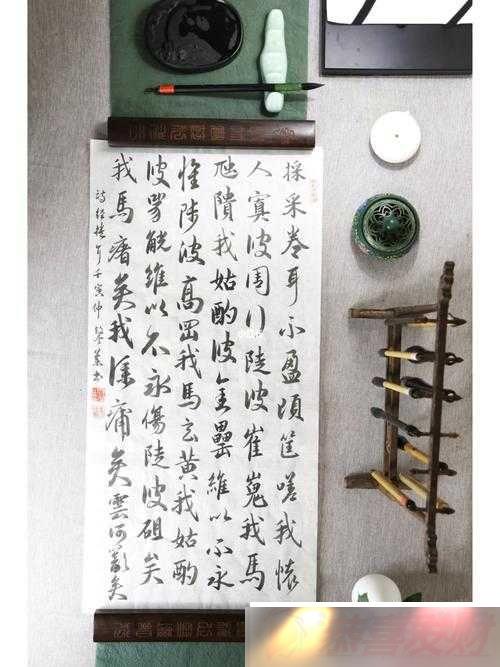 採采卷耳不盈頃筐嗟我懷
人寘彼周行陟彼崔嵬我馬
虺隤我姑酌彼金罍維以不永
懷陟彼高岡我馬玄黃我姑酌
彼兕觥維以不永傷陟彼砠矣
我馬瘏矣我僕痡矣雲何籲矣
壬寅仲
恭喜发财